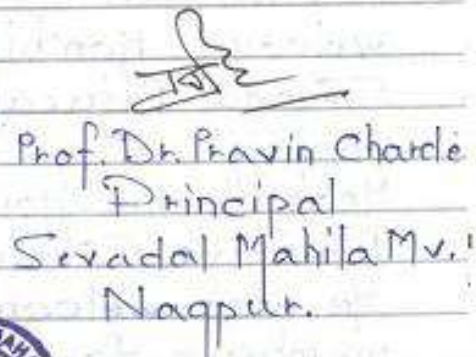 Prof. Dr. Pravin Charde
Principal
Sevadal Mahila Mv.
Nagpur.